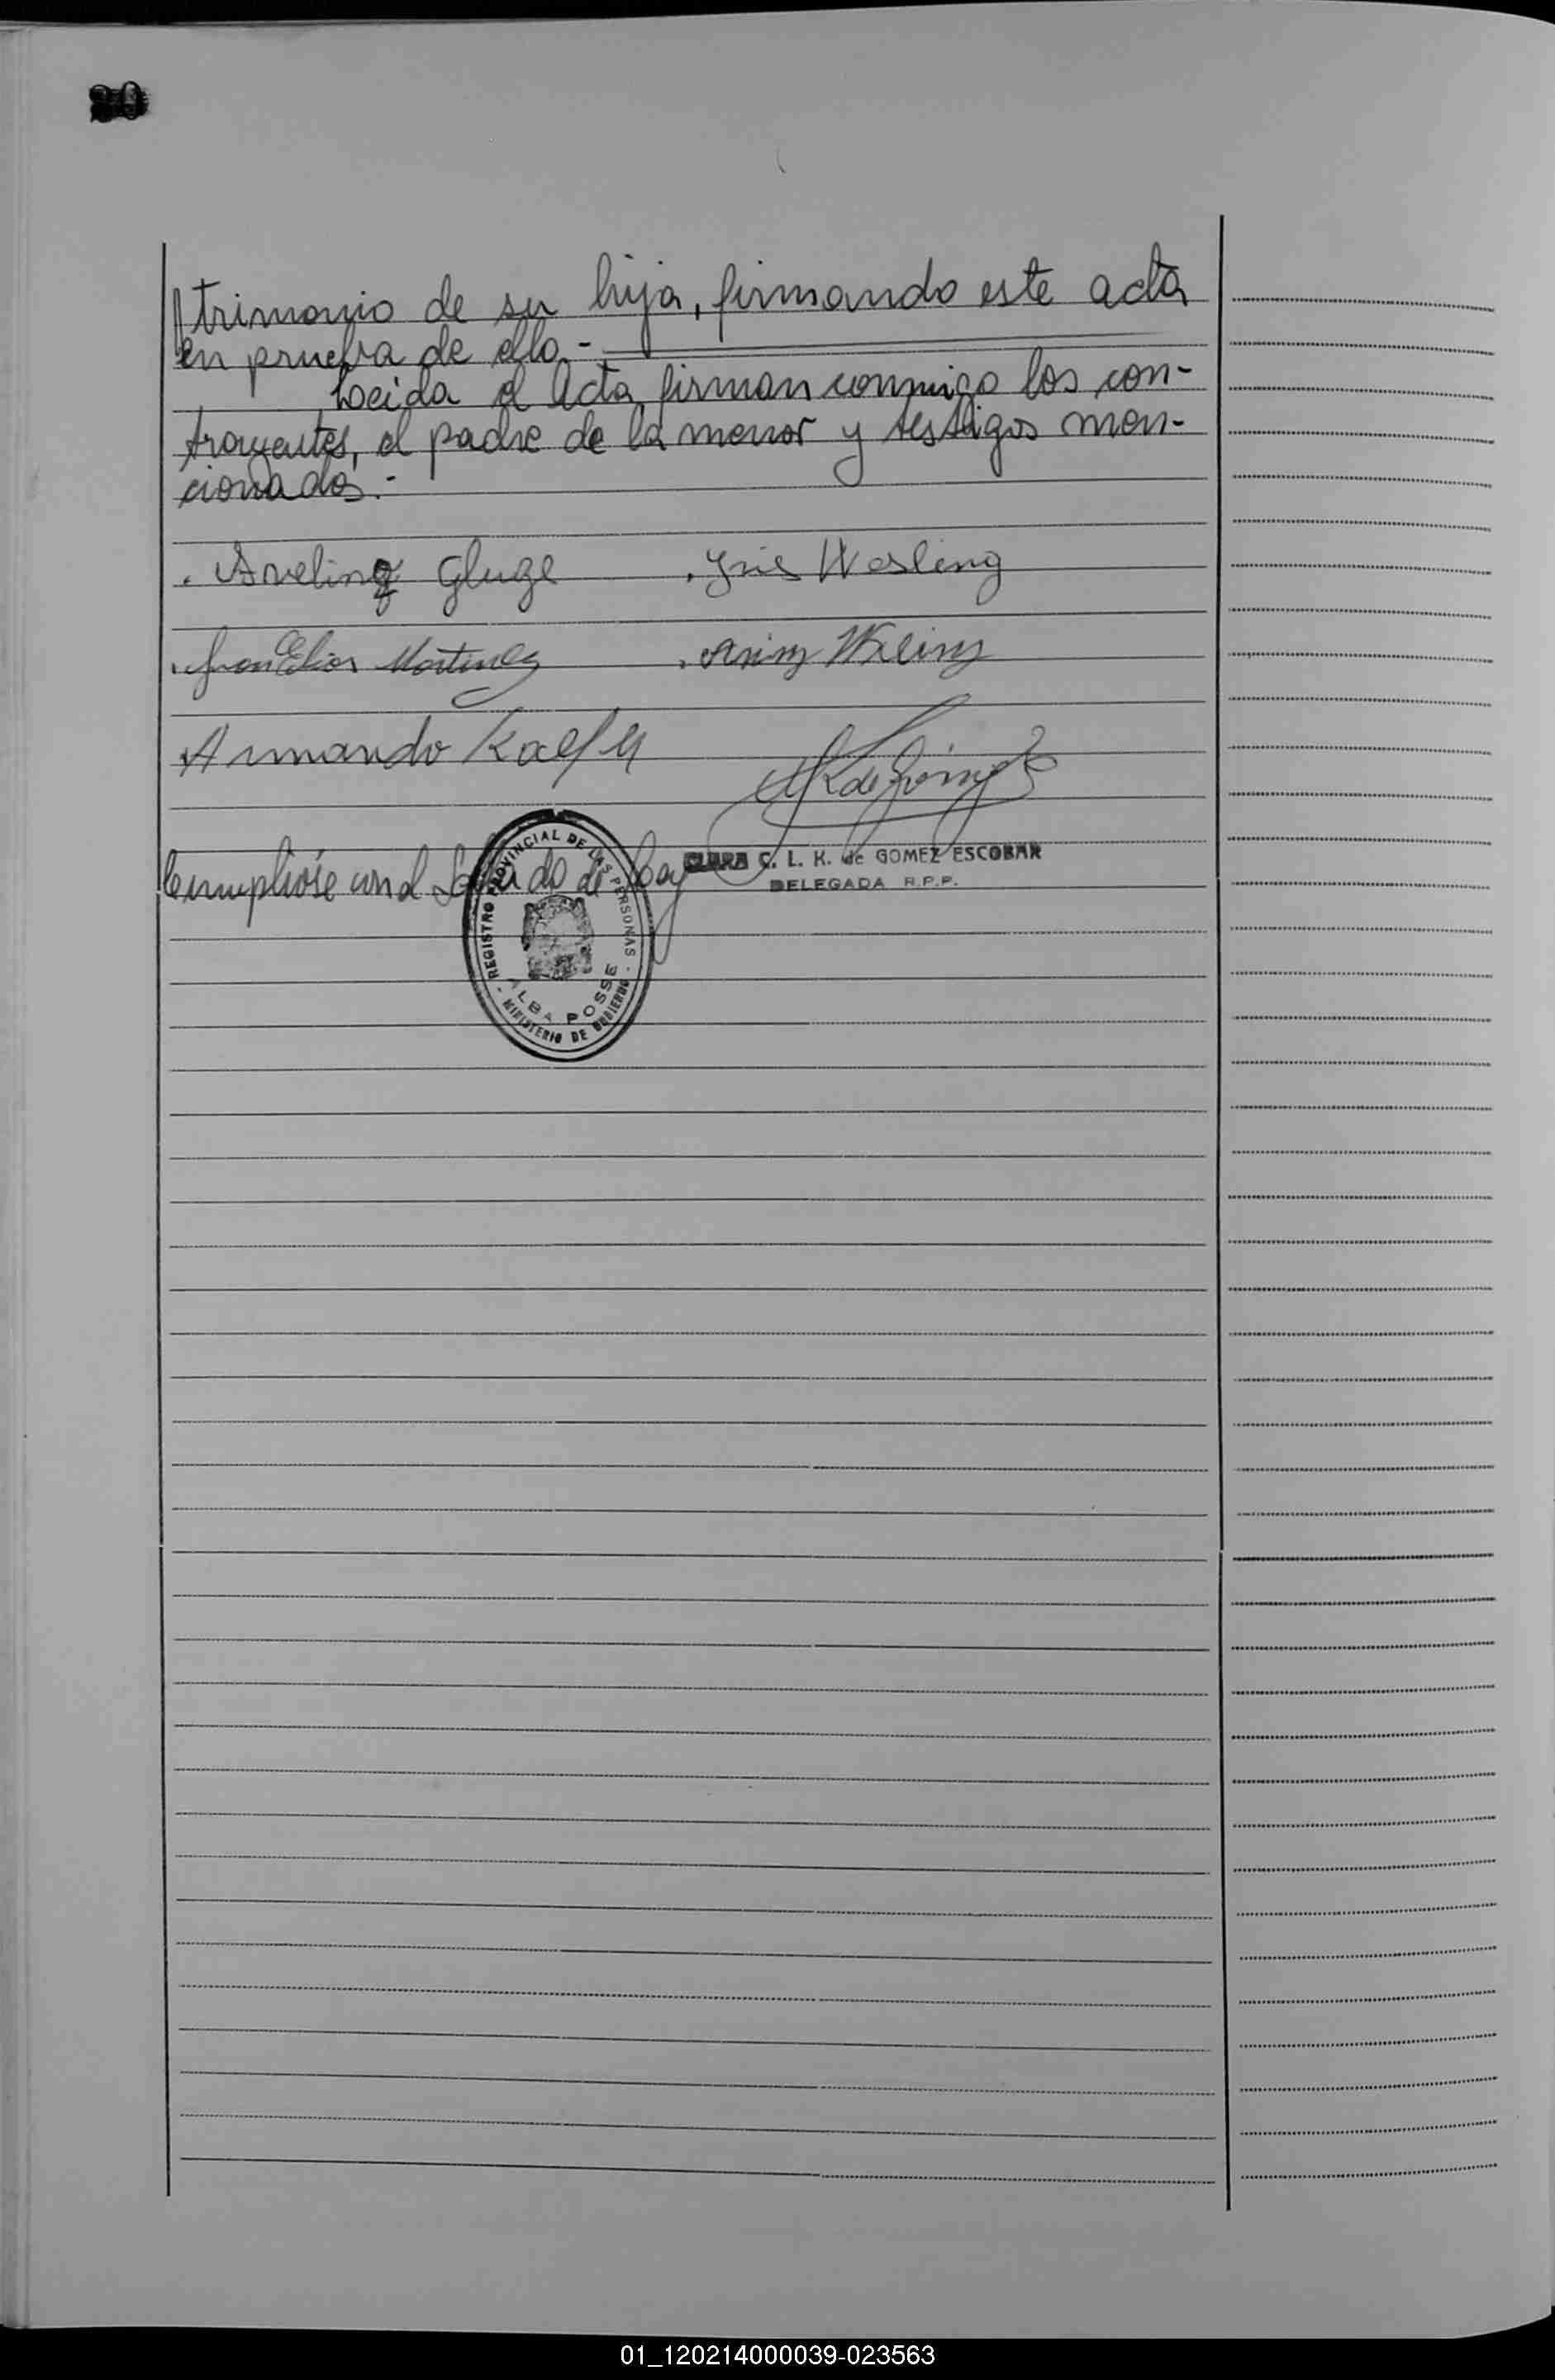 20
trimonio de su hija, firmando este acta
en prueba de ello.-
Leida el Acta, firman conmigo los con-
trayentes, el padre de la menor y testigos men-
cionados.-
Avelino Gluge
Juan Elias Martinez
Armando Kaefer
CLARA C. L. K. de GOMEZ ESCOBAR
DELEGADA R.P.P.
Cumplióse con el Sellado de Ley
REGISTRO PROVINCIAL DE LAS PERSONAS
ALBA POSSE
MINISTERIO DE GOBIERNO
01_120214000039-023563